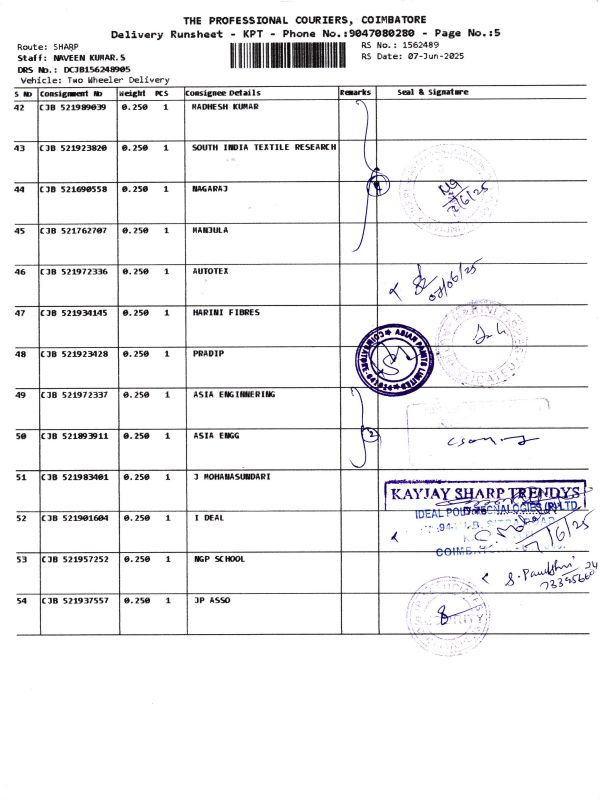 THE PROFESSIONAL COURIERS, COIMBATORE
Delivery Runsheet - KPT - Phone No.:9047080280 - Page No.:5
Route: SHARP
RS No.: 1562489
Staff: NAVEEN KUMAR.S
RS Date: 07-Jun-2025
DRS No.: DCJB156248905
Vehicle: Two Wheeler Delivery
S No Consignment No Weight PCS Consignee Details Remarks Seal & Signature
42 CJB 521989039 0.250 1 MADHESH KUMAR
43 CJB 521923820 0.250 1 SOUTH INDIA TEXTILE RESEARCH
44 CJB 521690558 0.250 1 NAGARAJ 4
7/6/25
45 CJB 521762707 0.250 1 MANJULA
46 CJB 521972336 0.250 1 AUTOTEX
07/06/25
47 CJB 521934145 0.250 1 HARINI FIBRES
48 CJB 521923428 0.250 1 PRADIP
ASIAN PAINTS LIMITED
49 CJB 521972337 0.250 1 ASIA ENGINNERING
50 CJB 521893911 0.250 1 ASIA ENGG 2
51 CJB 521983401 0.250 1 J MOHANASUNDARI
KAYJAY SHARP TRENDYS
52 CJB 521901604 0.250 1 I DEAL
7/6/25
53 CJB 521957252 0.250 1 NGP SCHOOL
54 CJB 521937557 0.250 1 JP ASSO
SECURITY